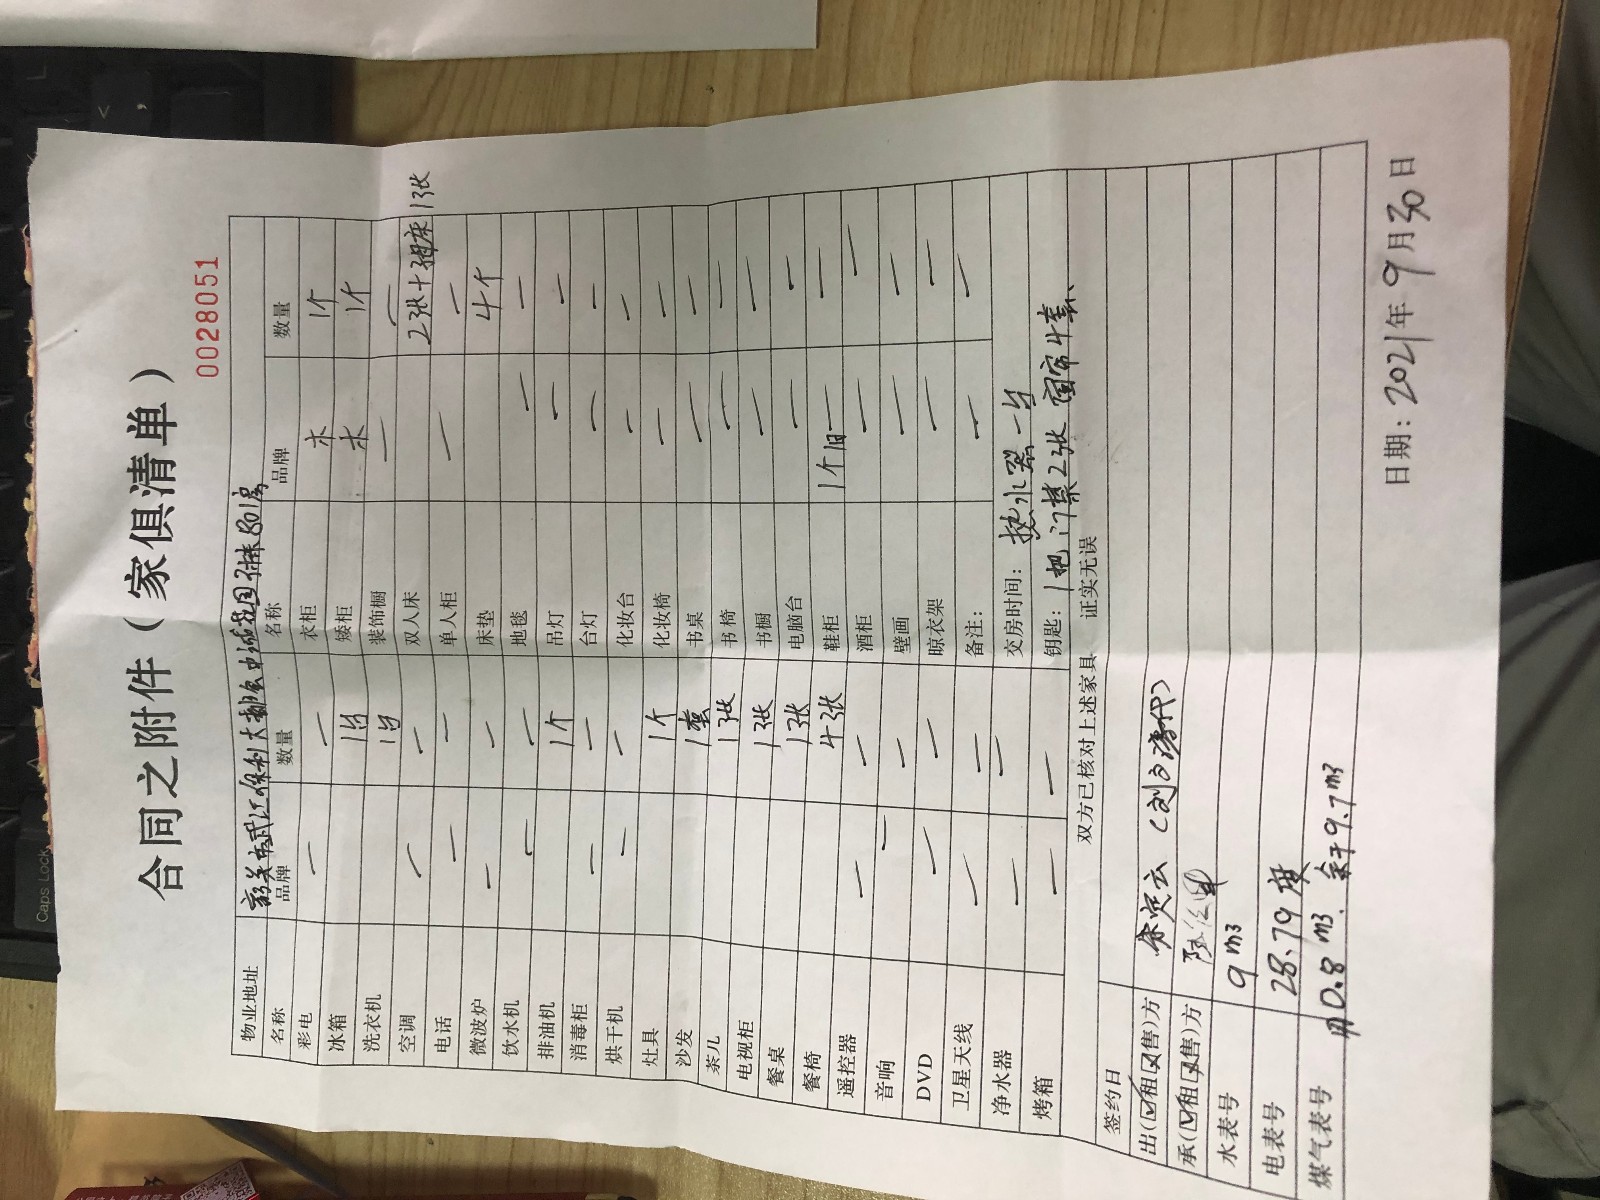 合同之附件（家俱清单）
0028051
物业地址 韶关市武江保利大都会中 801房
名称 品牌 数量 名称 品牌 数量
彩电 — — 衣柜 木 1个
冰箱 1台 矮柜 木 1个
洗衣机 1台 装饰橱 — —
空调 — — 双人床 2张+ 床1张
电话 — — 单人柜 — —
微波炉 — — 床垫 4个
饮水机 — — 地毯 — —
排油机 1个 吊灯 — —
消毒柜 — — 台灯 — —
烘干机 — — 化妆台 — —
灶具 1个 化妆椅 — —
沙发 1套 书桌 — —
茶几 1张 书椅 — —
电视柜 1张 书橱 — —
餐桌 1张 电脑台 — —
餐椅 4张 鞋柜 1个旧 —
遥控器 — — 酒柜 — —
音响 — — 壁画 — —
DVD — — 晾衣架 — —
卫星天线 — — 备注： — —
净水器 — — 交房时间：热水器一台
烤箱 — — 钥匙：1把 门禁2张 窗帘4套、
双方已核对上述家具 证实无误
签约日
出(☑租☒售)方
承(☑租☒售)方
水表号 9m3
电表号 28.79度
煤气表号 用0.8m3. 余于9.7m3
日期：2021年9月30日